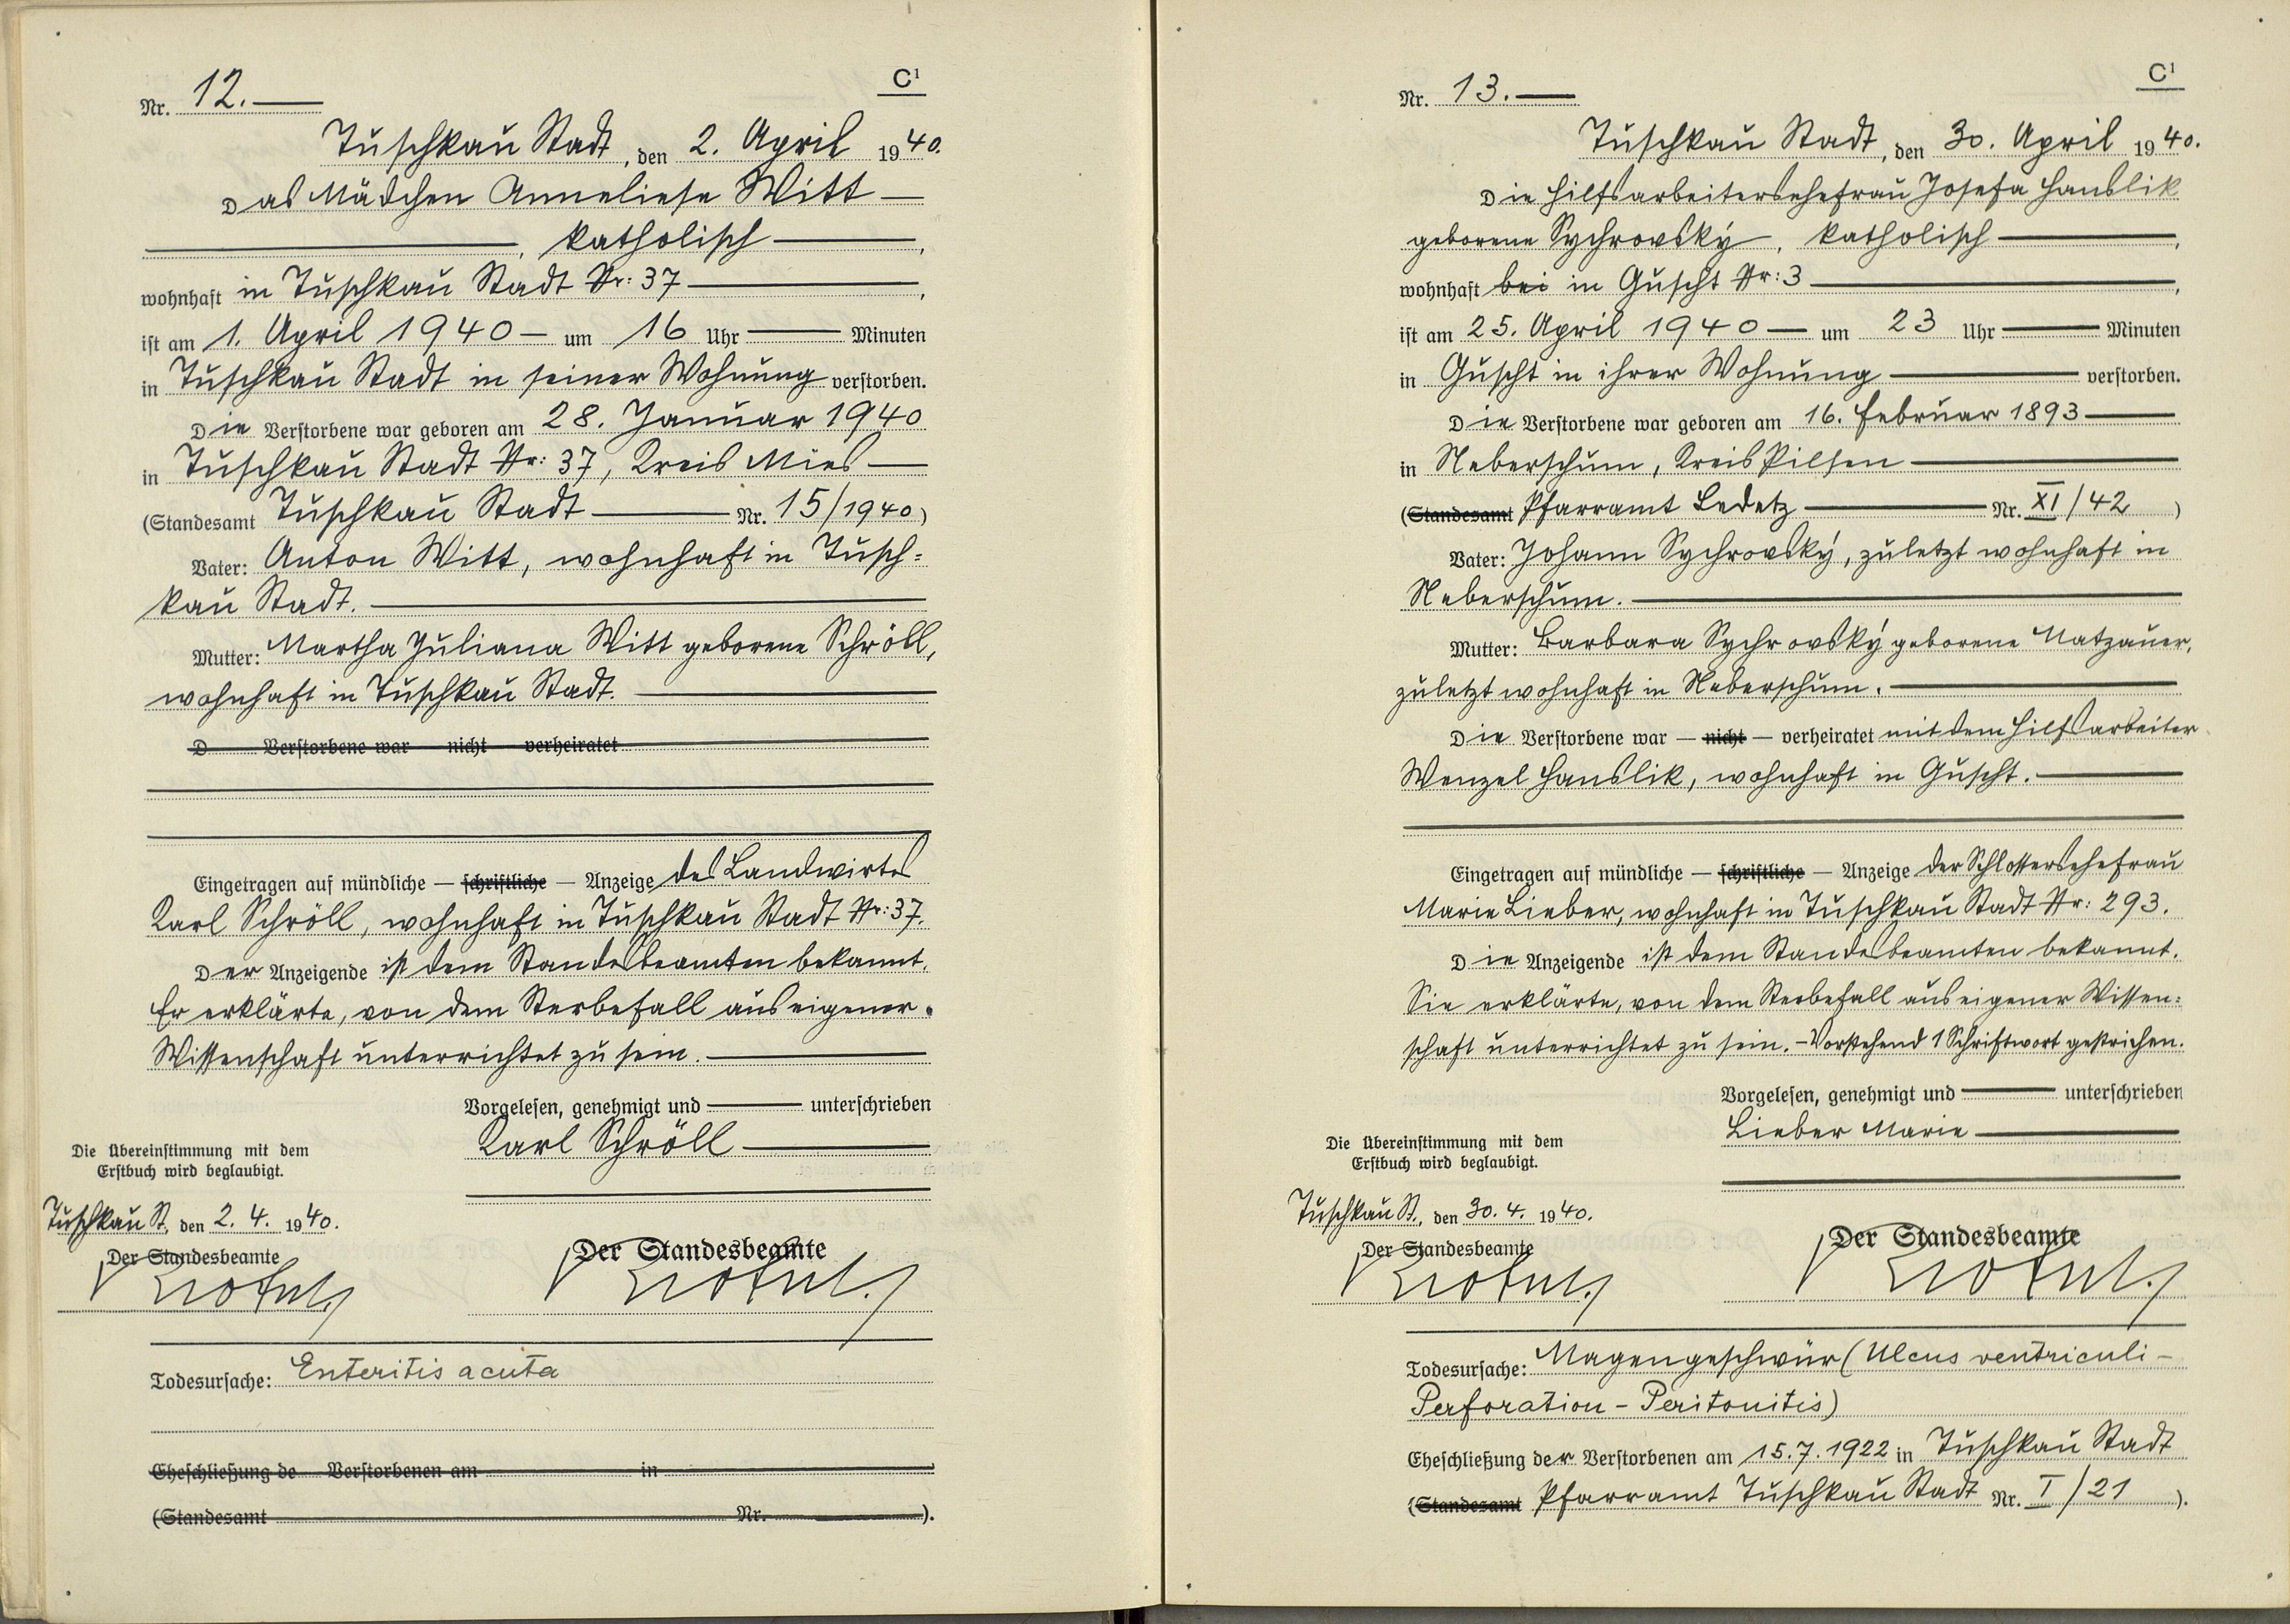 C¹
Nr. 12.
Tuschkau Stadt, den 2. April 1940.
Das Mädchen Anneliese Witt
, katholisch,
wohnhaft in Tuschkau Stadt Nr: 37,
ist am 1. April 1940 um 16 Uhr Minuten
in Tuschkau Stadt in seiner Wohnung verstorben.
Die Verstorbene war geboren am 28. Januar 1940
in Tuschkau Stadt Nr: 37, Kreis Mies
(Standesamt Tuschkau Stadt Nr. 15/1940)
Vater: Anton Witt, wohnhaft in Tusch=
kau Stadt.
Mutter: Martha Juliana Witt geborene Schröll,
wohnhaft in Tuschkau Stadt.
D Verstorbene war nicht verheiratet
Eingetragen auf mündliche — schriftliche — Anzeige des Landwirtes
Karl Schröll, wohnhaft in Tuschkau Stadt Nr: 37.
Der Anzeigende ist dem Standesbeamten bekannt.
Er erklärte, von dem Sterbefall aus eigener
Wissenschaft unterrichtet zu sein.
Vorgelesen, genehmigt und unterschrieben
Karl Schröll
Die Übereinstimmung mit dem
Erstbuch wird beglaubigt.
Tuschkau St., den 2. 4. 1940.
Der Standesbeamte
Der Standesbeamte
Todesursache: Enteritis acuta
Eheschließung de Verstorbenen am in
(Standesamt Nr. ).
C¹
Nr. 13.
Tuschkau Stadt, den 30. April 1940.
Die Hilfsarbeitersehefrau Josefa Hanslik
geborene Sychrovský, katholisch,
wohnhaft bei in Guscht Nr: 3,
ist am 25. April 1940 um 23 Uhr Minuten
in Guscht in ihrer Wohnung verstorben.
Die Verstorbene war geboren am 16. Februar 1893
in Neberschum, Kreis Pilsen
(Standesamt Pfarramt Ledetz Nr. XI/42)
Vater: Johann Sychrovský, zuletzt wohnhaft in
Neberschum.
Mutter: Barbara Sychrovský geborene Matzauer,
zuletzt wohnhaft in Neberschum.
Die Verstorbene war — nicht — verheiratet mit dem Hilfsarbeiter
Wenzel Hanslik, wohnhaft in Guscht.
Eingetragen auf mündliche — schriftliche — Anzeige der Schlossersehefrau
Marie Lieber, wohnhaft in Tuschkau Stadt Nr: 293.
Die Anzeigende ist dem Standesbeamten bekannt.
Sie erklärte, von dem Sterbefall aus eigener Wissen=
schaft unterrichtet zu sein. – Vorstehend 1 Schriftwort gestrichen.
Vorgelesen, genehmigt und unterschrieben
Lieber Marie
Die Übereinstimmung mit dem
Erstbuch wird beglaubigt.
Tuschkau St., den 30. 4. 1940.
Der Standesbeamte
Der Standesbeamte
Todesursache: Magengeschwür (Ulcus ventriculi –
Perforation – Peritonitis)
Eheschließung der Verstorbenen am 15.7.1922 in Tuschkau Stadt
(Standesamt Pfarramt Tuschkau Stadt Nr. I/21 ).